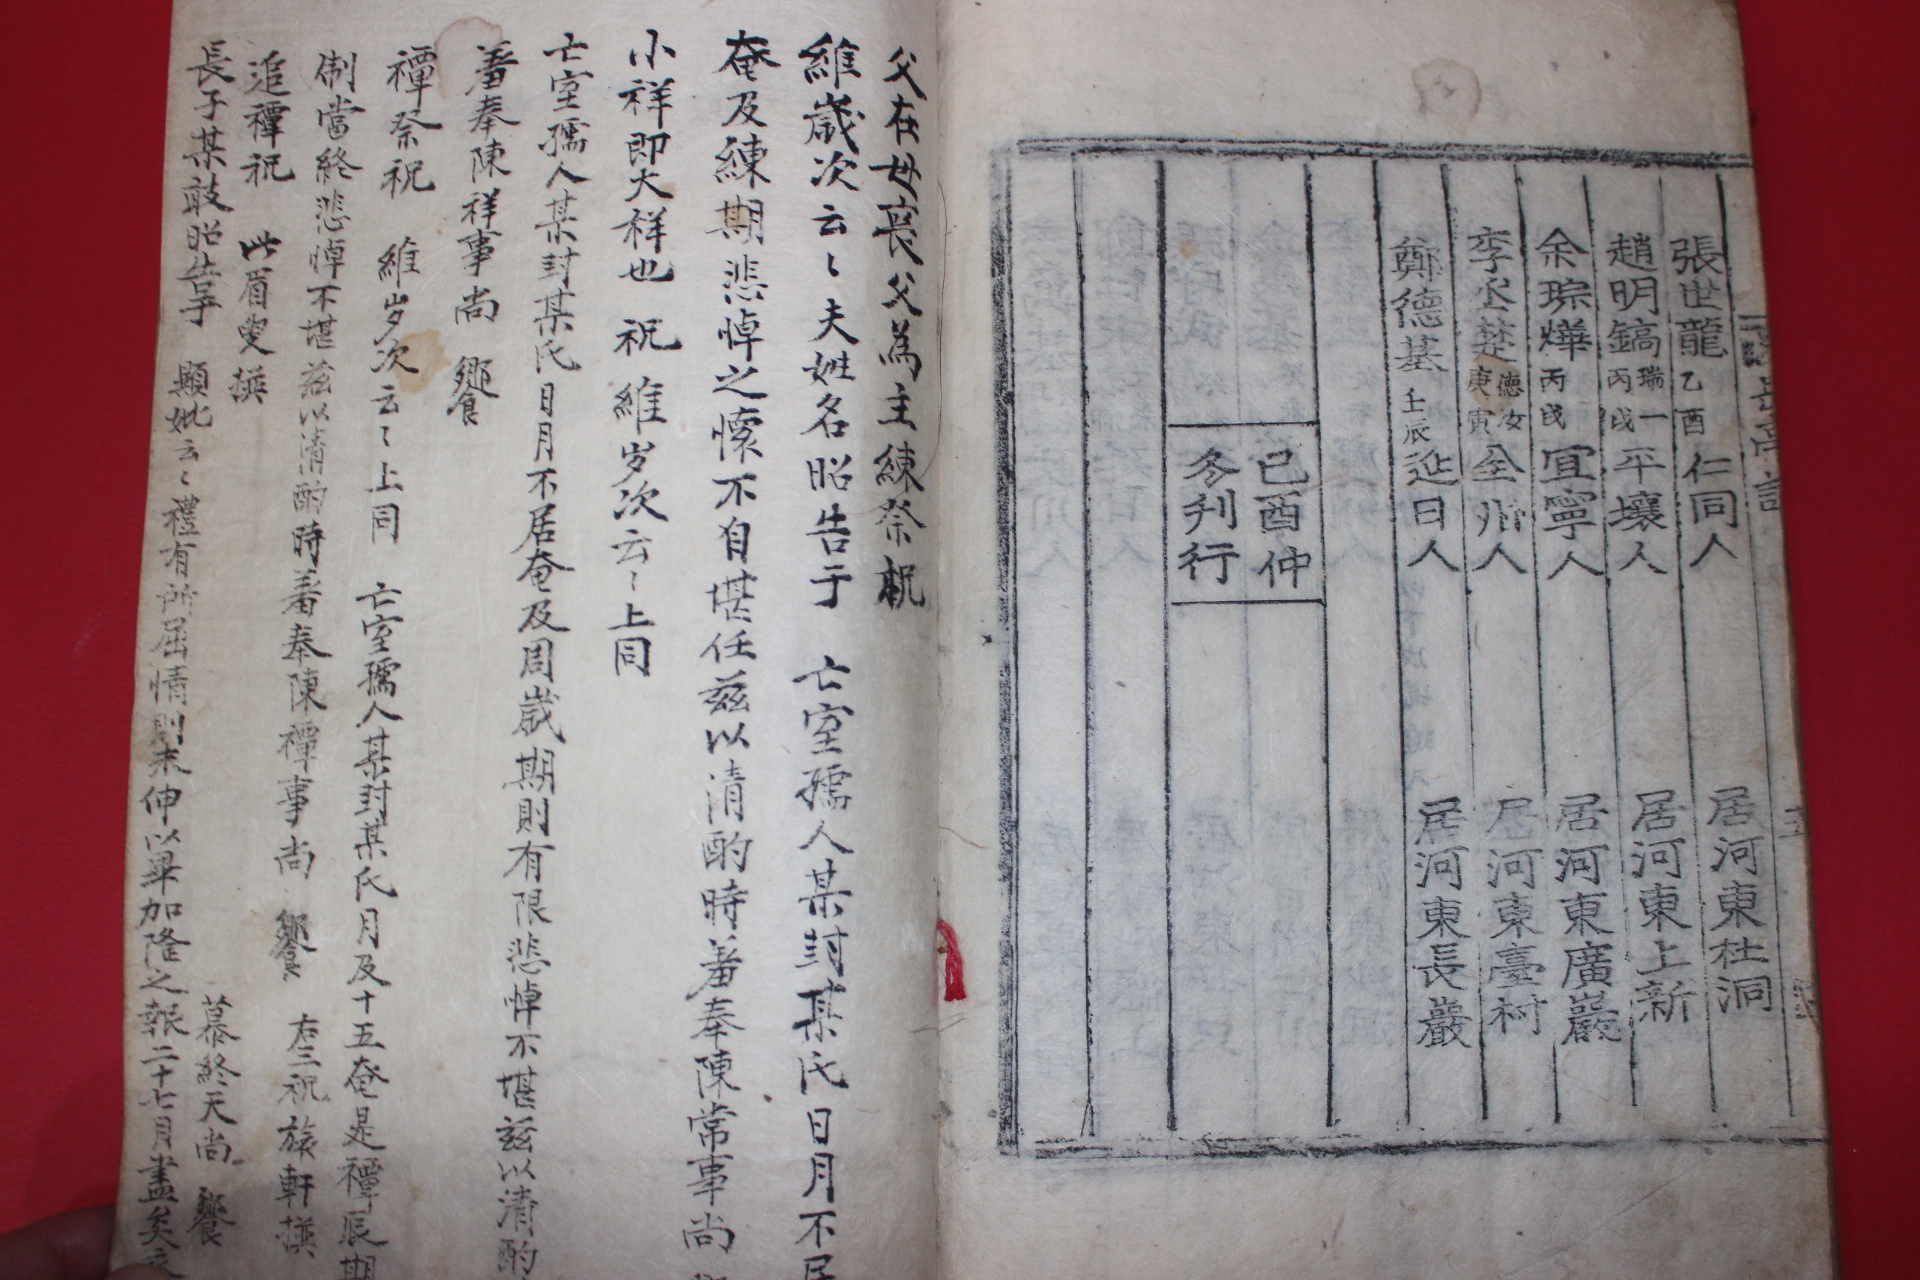 張世龍 乙酉 仁同人 居河東杜洞
趙明鎬 瑞一 丙戌 平壤人 居河東上新
余琮燁 丙戌 宜寧人 居河東廣巖
李丞楚 德汝 庚寅 全州人 居河東臺村
鄭德基 壬辰 延日人 居河東長巖
己酉仲
冬刋行
父在母喪父為主練祭祝
維歲次云〻夫姓名昭告于 亡室孺人某封某氏日月不居
奄及練期悲悼之懷不自堪任玆以清酌時羞奉陳常事尚
小祥即大祥也 祝 維岁次云〻上同
亡室孺人某封某氏日月不居奄及周歲期則有限悲悼不堪玆以清酌
羞奉陳祥事尚 饗
禫祭祝 維岁次云〻上同 亡室孺人某封某氏月及十五奄是禫辰期
制當終悲悼不堪玆以清酌時羞奉陳禫事尚 饗 右三祝旅軒撰
追禫祝 此眉叟撰
長子某敢昭告于 顯妣云〻禮有所屈情則未伸以畢加隆之報二十七月盡矣
慕終天尚 饗